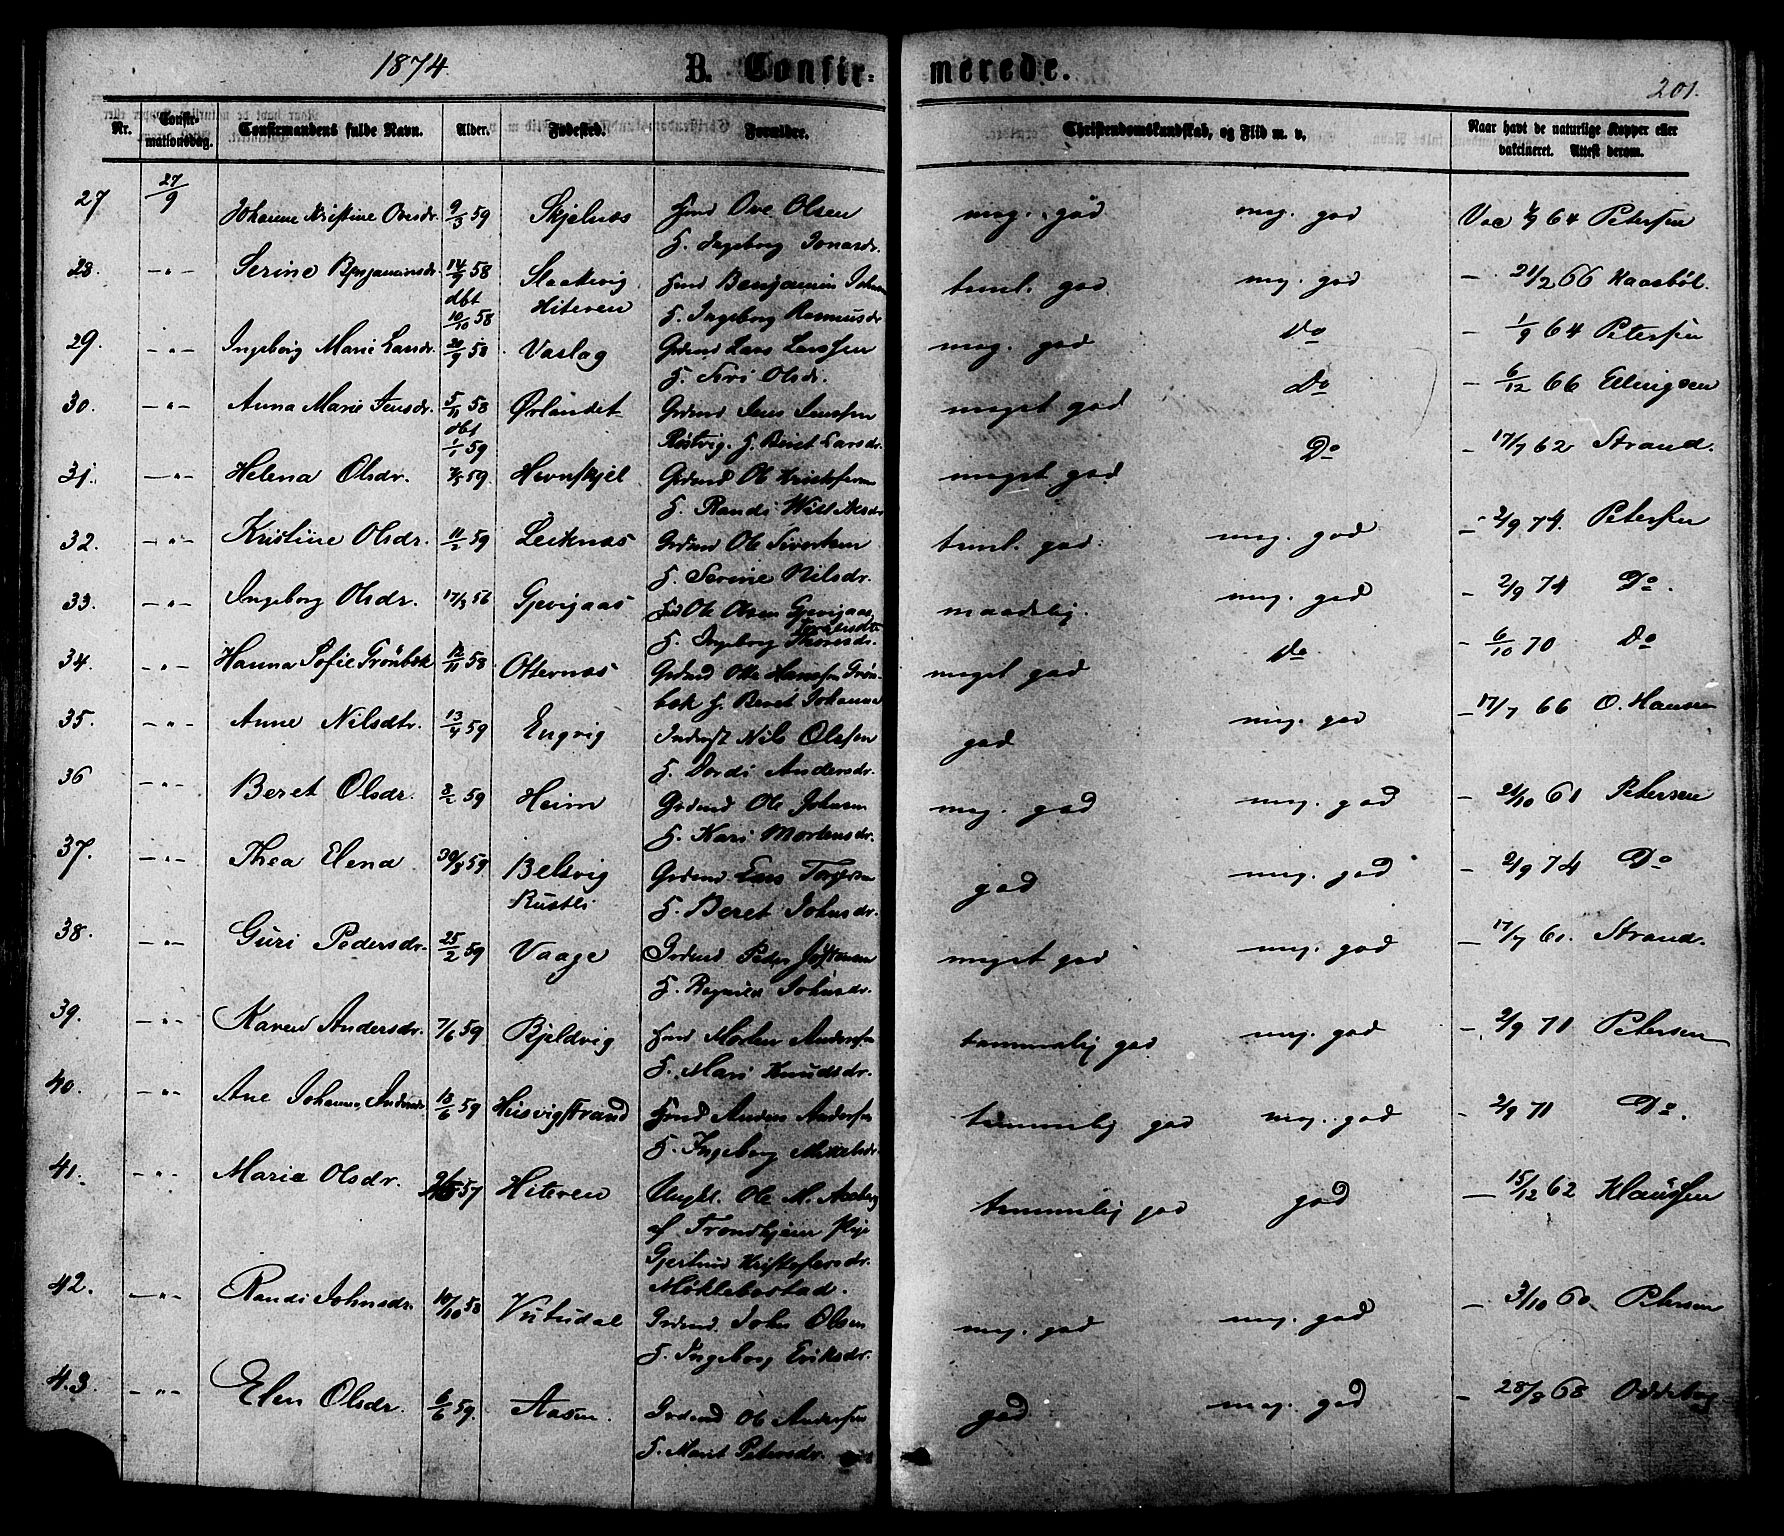 1874. B. Confir- merede. 201.
Nr. Confir- mationsdag. Confirmandens fulde Navn. Alder. Fødested. Forældre. Christendomskundskab, og Flid m. v. Naar havt de naturlige Kopper eller vakcineret. Attest derom.
27 27/9 Johanne Kristine Ovesdr. 9/3 59 Skjelnæs Hmd Ove Olsen meg. god meg. god Vac 1/9 64 Petersen
F. Ingeborg Jonasdr.
28. -"- Serine Benjaminsdr. 14/9 58 Staalvig Hmd Benjamin Johnsen teml. god meg. god - 21/2 66 Kaasbøl.
dbt 10/10 58 Hiteren F. Ingeborg Rasmusdr
29. -"- Ingeborg Marie Larsdr. 20/9 58 Vaslag Grdmd Lars Larssen meg. god Do - 1/9 64 Petersen
F. Siri Olsdr.
30. -"- Anna Marie Jensdr. 5/11 58 Ørlandet Grdmd Jens Jenssen meget god Do - 6/12 66 Ellingsen
dbt 1/1 59 Røstvig. F. Beret Larsdr.
31. -"- Helena Olsdr. 59. Hevnskjel Grdmd Ole Kristofersen meget god Do - 17/7 62 Strand.
F. Randi
32. -"- Kristine Olsdr. 11/2 59 Leiknæs Grdmd Ole Sivertsen teml. god. meg. god - 2/9 74. Petersen
F. Serine Nilsdr.
33. -"- Ingeborg Olsdr. 17/3 56 Gjevigaas Hmd Ole Olsen Gjevigaas maadelig. meg. god - 2/9 74 Do.
F. Ingeborg Thoresdr.
34. -"- Hanna Sofie Grønbæk 12/11 58 Otternæs Grdmd Otto Hanssen Grøn- meget god Do - 6/10 70 Do
bæk F. Beret Johanna
35. -"- Anne Nilsdtr. 13/4 59 Engvig Inderst Nils Olessen god meg. god - 17/7 66 O. Hansen
F. Dordi Andersdr.
36 -"- Beret Olsdr. 8/2 59 Heim Grdmd Ole Johnsen meg. god meg. god - 21/10 61 Petersen
F. Kari Mortensdr.
37. -"- Thea Elena 30/8 59 Belsvig Grdmd. Lars god meg. god - 2/9 74 Do
Rustli F. Beret Johnsdr.
38. -"- Guri Pedersdr. 25/2 59 Vaage Grdmd Peder meget god meg. god - 17/7 61. Strand.
F. Johnsdr.
39. -"- Karen Andersdr. 7/6 59 Bjeldvig Hmd Morten Anderssen temmelig god meg. god - 2/9 71 Petersen
F. Mari Knudsdr.
40. -"- Ane Johanna Andersdr 13/6 59 Husvigstrand Hmd Anders Anderssen temmelig god meg. god - 2/9 71 Do.
F. Ingeborg Mikkelsdr.
41. -"- Marie Olsdr. 57 Hiteren Ungkl. Ole M. Aasberg temmelig god god - 15/12 62 Klaussen
af Trondhjem Pige
Gjertrud Kristofersdr.
Møklebostad.
42. -"- Randi Johnsdr. 10/10 58 Vutudal Grdmd. John Olsen meg. god meg. god - 3/10 60. Petersen
F. Ingeborg Eriksdr.
43. -"- Elen Olsdr. 6/6 59. Aasen Grdmd Ole Anderssen god meg. god - 28/8 68
F. Marit Petersdr.